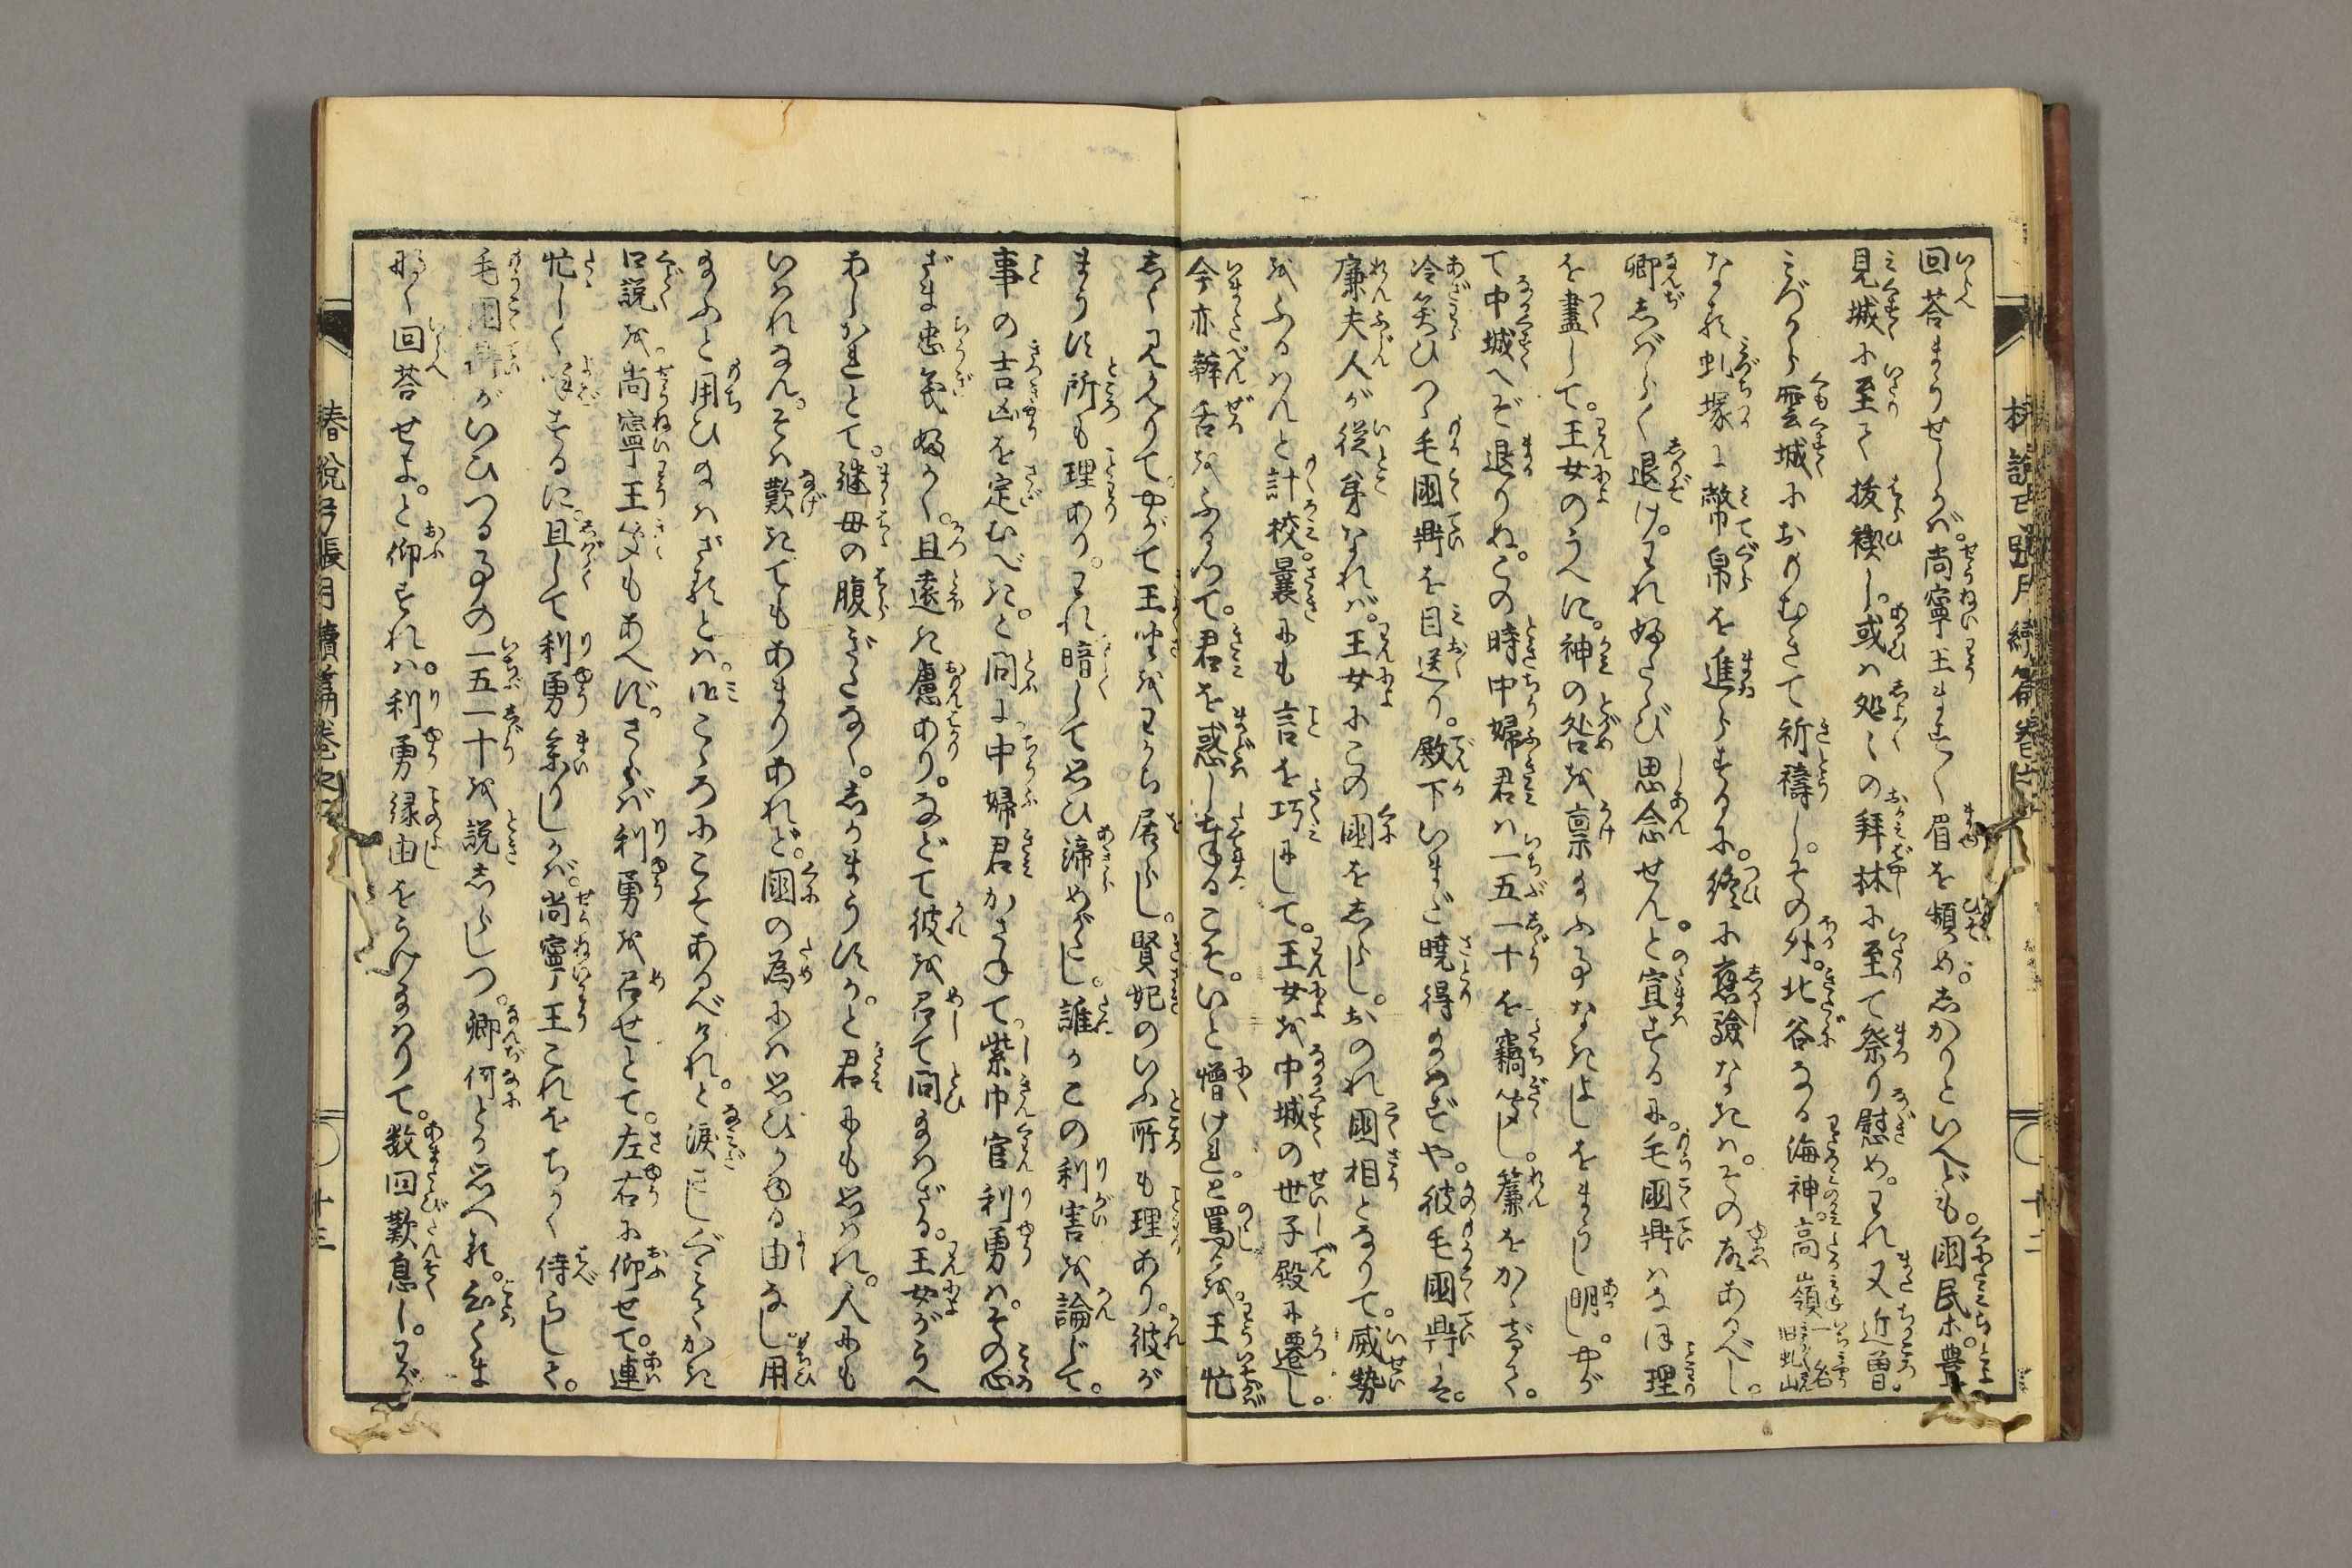 回荅まうせしかば。尚寧王ます〳〵眉を顰め。しかりといへども。國民ホ。豊
見城に至て抜禊し。或ハ処〻の拜林に至て祭り慰め。われ又近曽
みづから雲城におもむきて祈禱し。その外。北谷なる海神。高嶺一名旧虬山
なる虬塚に幣帛を進らするに。終に應驗なきハ。その故あるべし。
卿しばらく退け。われ如たび思念せんと宣するに。毛國鼎ハなほ理
を盡して。王女のうへに。神の咎を禀給ふ事なきよしをまうし明し。やが
て中城へぞ退りぬ。この時中婦君ハ一五一十を竊聞し。簾をかゝげて。
冷笑ひつゝ毛國鼎を目送り。殿下いまだ曉得給はずや。彼毛國鼎ハ。
廉夫人が從弟なれバ。王女にこの國をしらし。おのれ國相となりて。威勢
をふるハんと計校。曩にも言を巧にして。王女を中城の世子殿に遷し。
今亦辯舌をふるつて。君を惑し奉るこそ。いと憎けれ。と罵るを。王忙
しく見かへりて。やがて王坐をわかち居らし。賢妃のいふ所も理あり。彼が
まうす所も理あり。われ暗して思ひ諦めがたし。誰かこの利害を論じて。
事の吉凶を定むべき。と問に。中婦君かさねて。紫巾官利勇ハ。その心
ざま忠義ふかく。且遠き慮あり。などて彼を召て問給はざる。王女がうへ
あしかれとて。継母の腹ぎたなく。しかまうすか。と君にも思はれ。人にも
いはれなん。そハ歎きてもあまりあれど。國の為にハ思ひかゆる由なし。用
給ふと用ひ給ハざるとハ。御こゝろにこそあるべけれ。と涙さしぐみてかき
口説を。尚寧王聞もあへず。さらバ利勇を召せとて。左右に仰せて。連
忙しく喚するに。且して利勇参りしかバ。尚寧王これをちかく侍らして。
毛國鼎がいひつる事の一五一十を説しらしつ。卿何とか思へる。こゝろくま
なく回荅せよ。と仰すれハ。利勇縁由をうけ給はりて。数回歎息し。わが
椿説弓張月續篇卷之
十二
椿說弓張月續篇卷之
十三